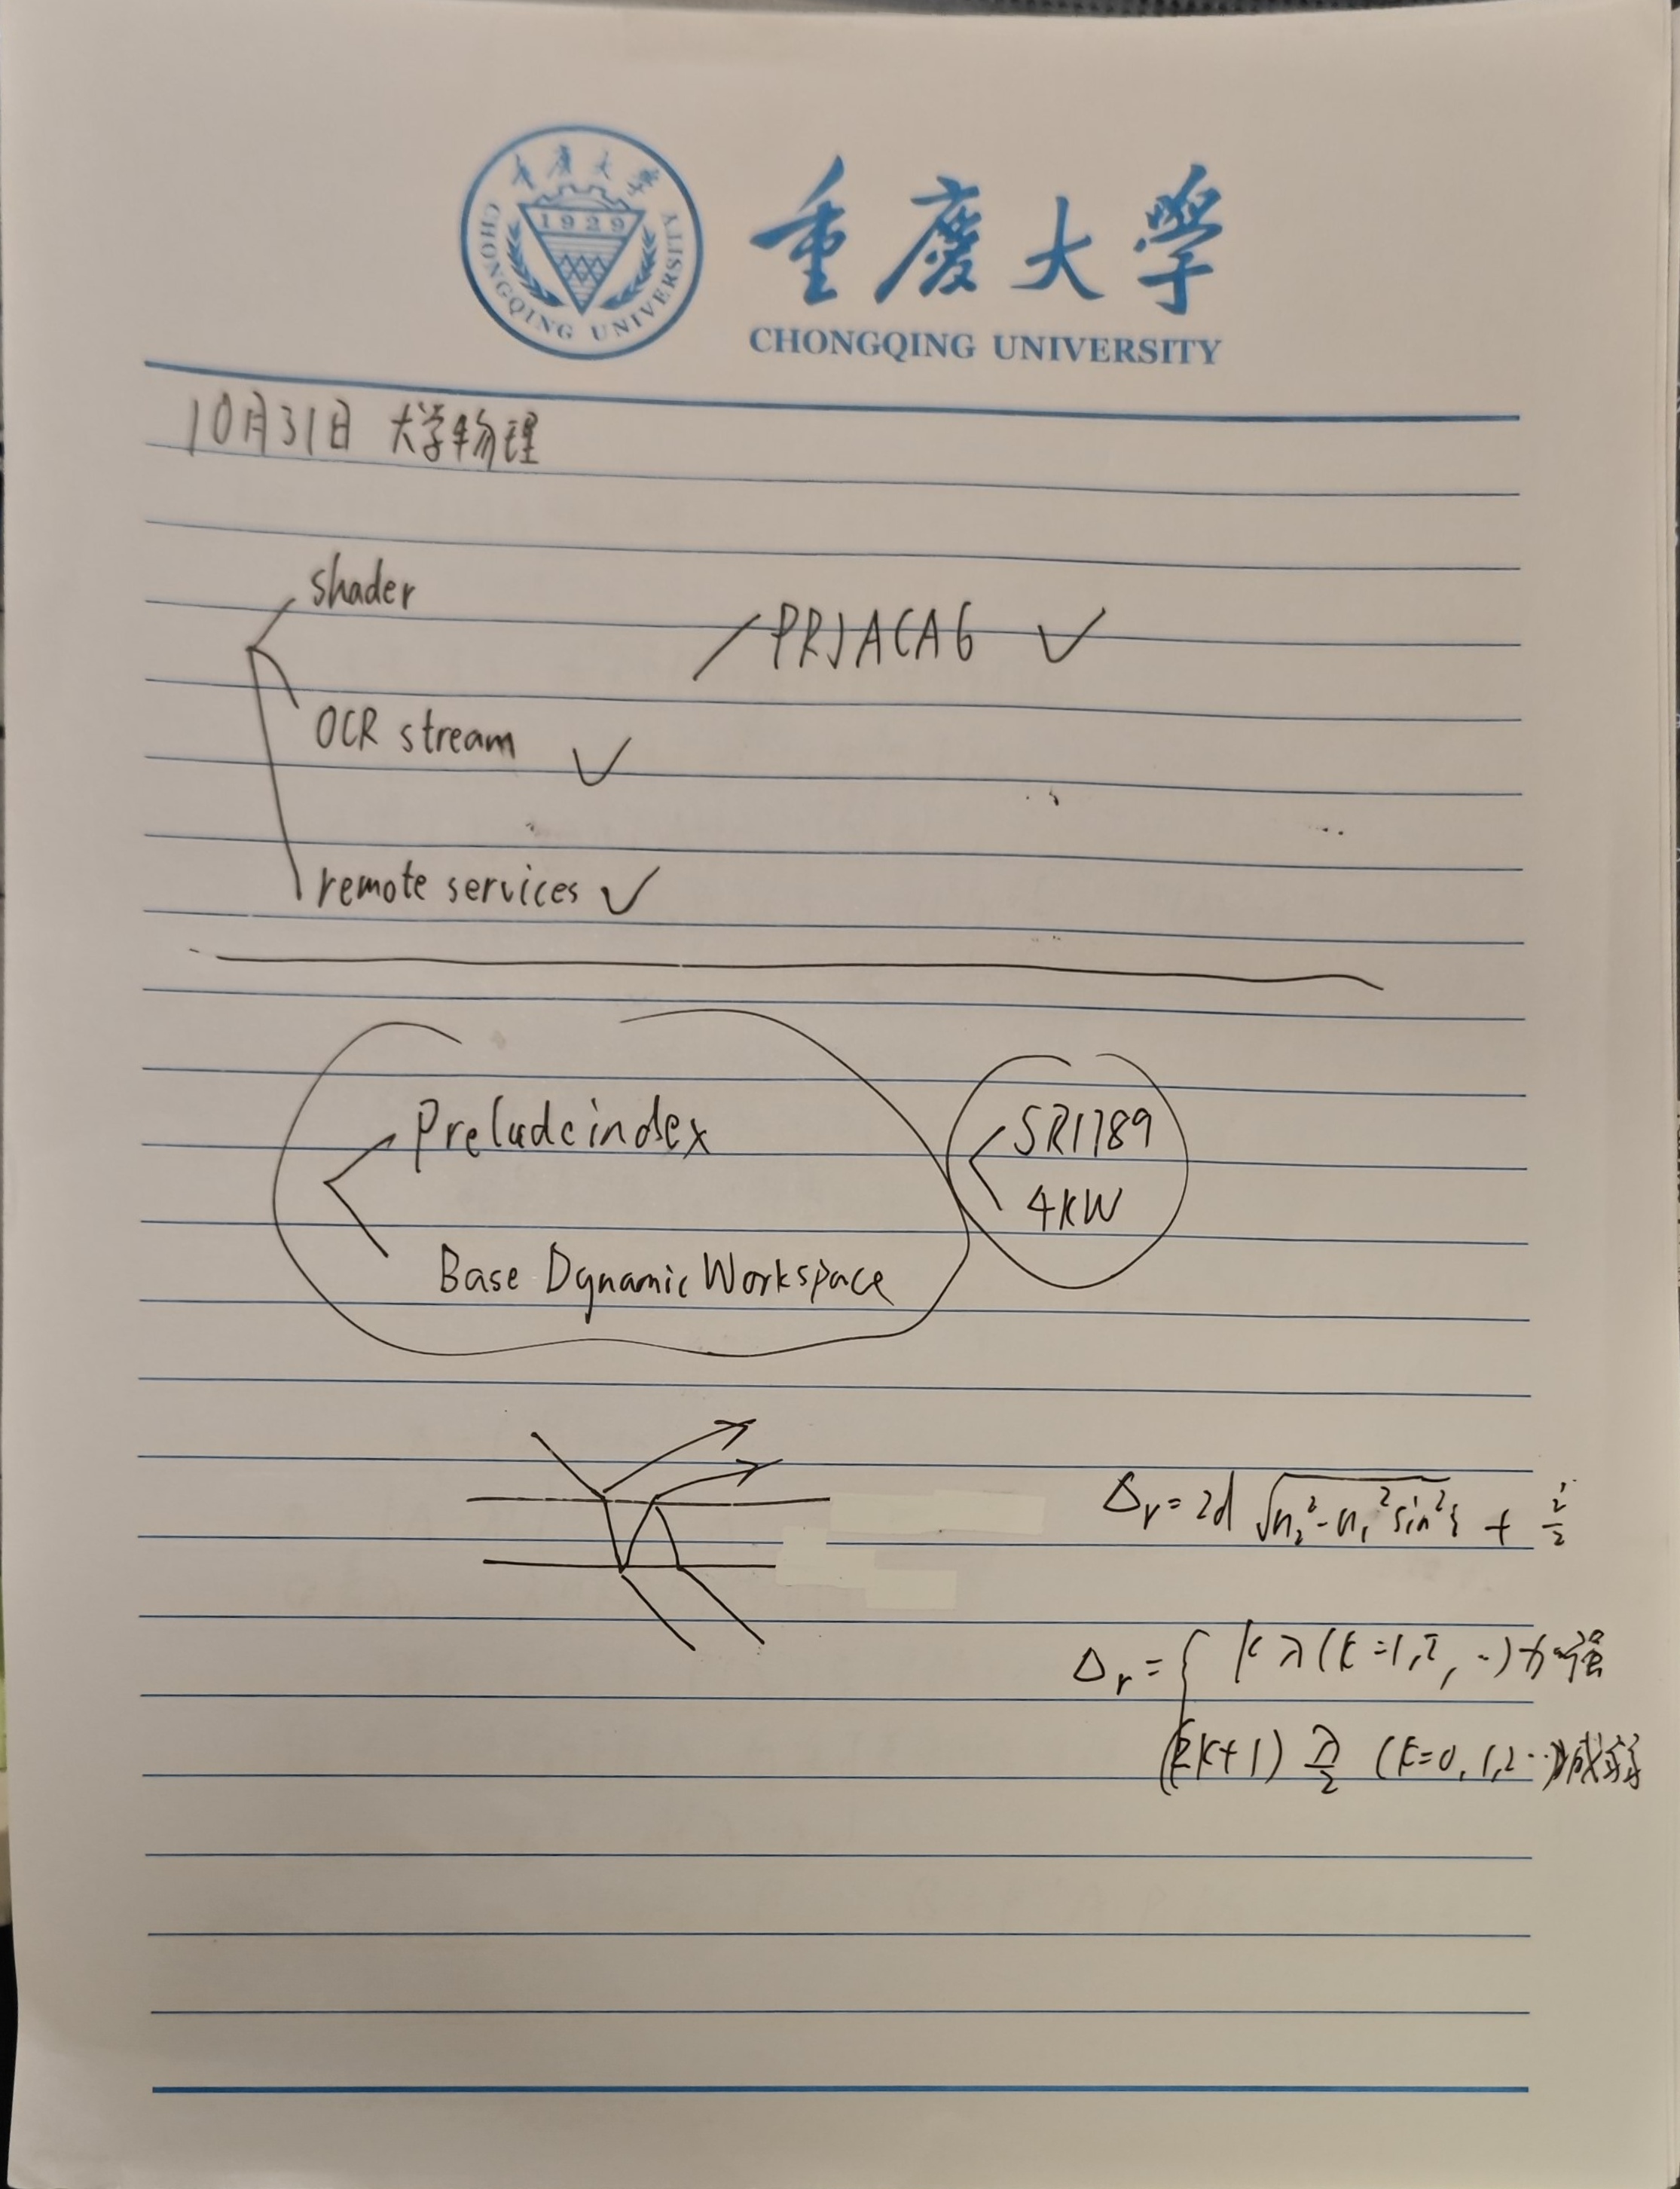 重慶大學
1929
CHONGQING UNIVERSITY
重慶大學
CHONGQING UNIVERSITY
10月31日 大学物理
shader
PRJACAG ✓
OCR stream ✓
remote services ✓
Preludeindex
SR1789
4KW
Base Dynamic Workspace
Δr=2d √n₂²-n₁²sin²i + λ/2
Δr={ kλ(k=1,2,…)加强
(2k+1) λ/2 (k=0,1,2…)减弱